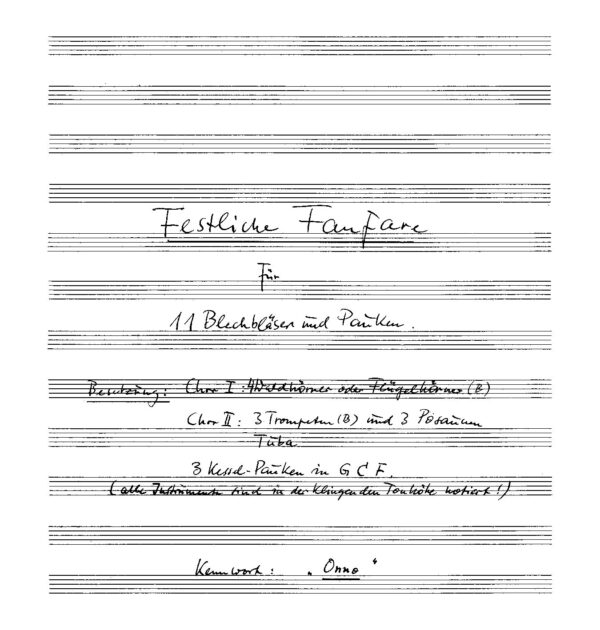 Festliche Fanfare
Für
11 Blechbläser und Pauken.
Besetzung: Chor I: 4 Waldhörner oder Flügelhörner (B)
Chor II: 3 Trompeten (B) und 3 Posaunen
Tuba
3 Kessel-Pauken in G C F.
(alle Instrumente sind in der klingenden Tonhöhe notiert!)
Kennwort: „Onno“